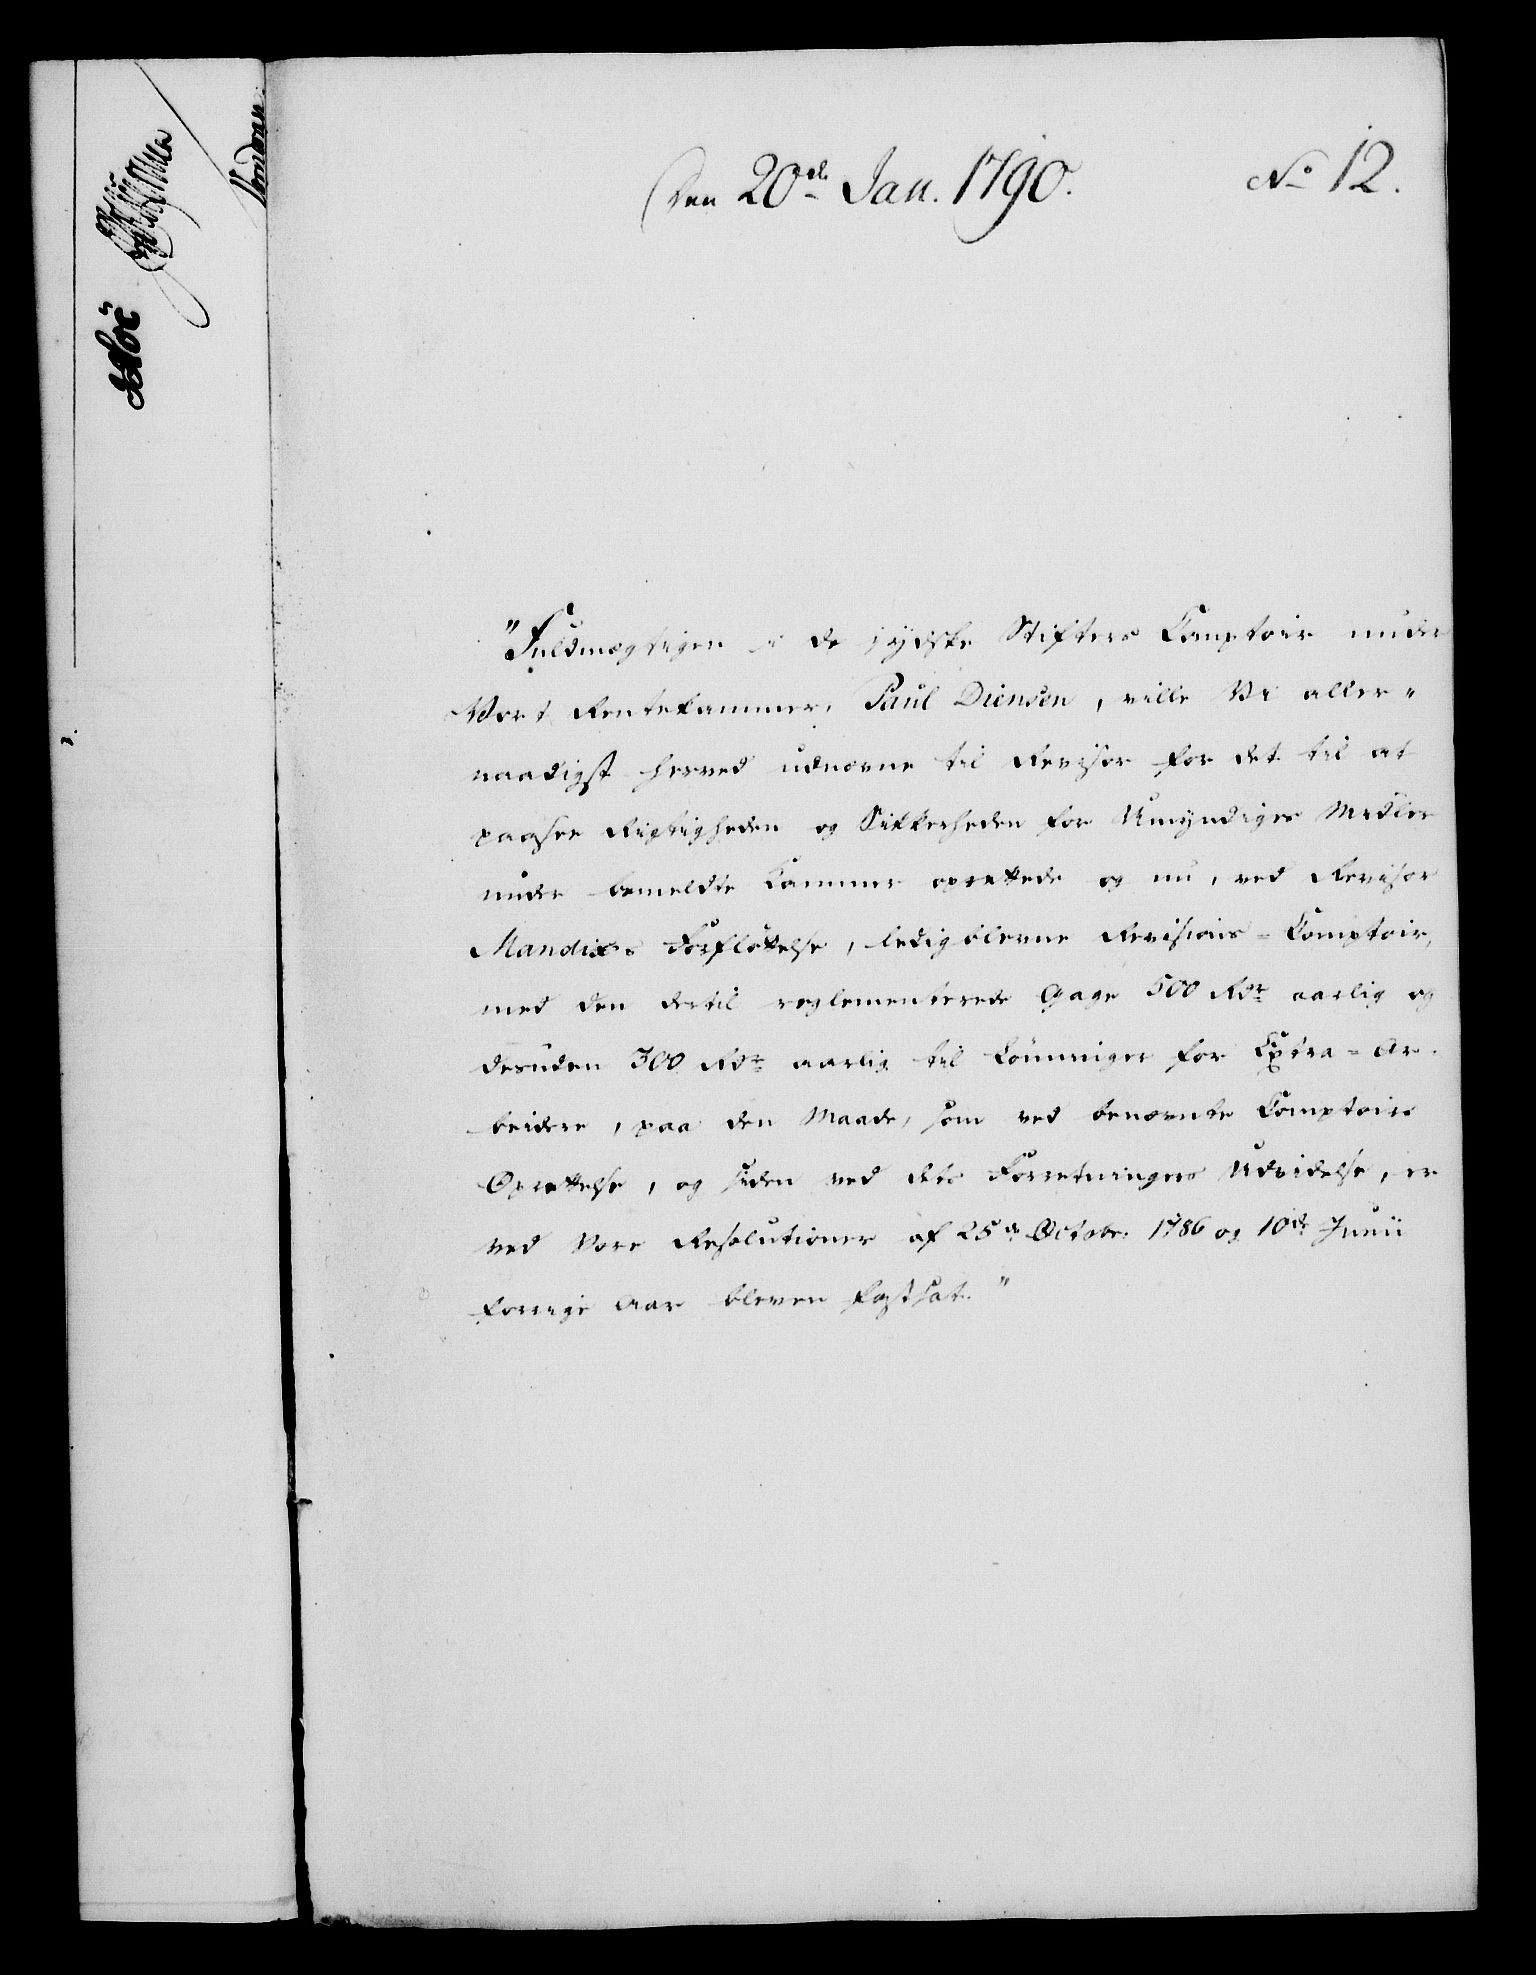 Den 20de Jan. 1790.
No 12.
"Fuldmægtigen i de jydske Stifters Comptoir under
Vort Rentekammer, Paul Diensen, ville Vi aller-
naadigst herved udnævne til Revisor for det til at
paasee Rigtigheden og Sikkerheden for Umyndiges Midler
under bemeldte Kammer oprettede og nu, ved Revisor
Mandix's Forflÿttelse, ledigblevne Revisions-Comptoir,
med den dertil reglementerede Gage 500 Rdr aarlig og
desuden 300 Rdr aarlig til Lønninger for Extra-Ar-
beidere, paa den Maade, som ved benævnte Comptoirs
Oprettelse, og siden ved dets Forretningers Udvidelse, er
ved Vore Resolutioner af 25de October 1786 og 10de Junii
forrige Aar bleven fastsat."